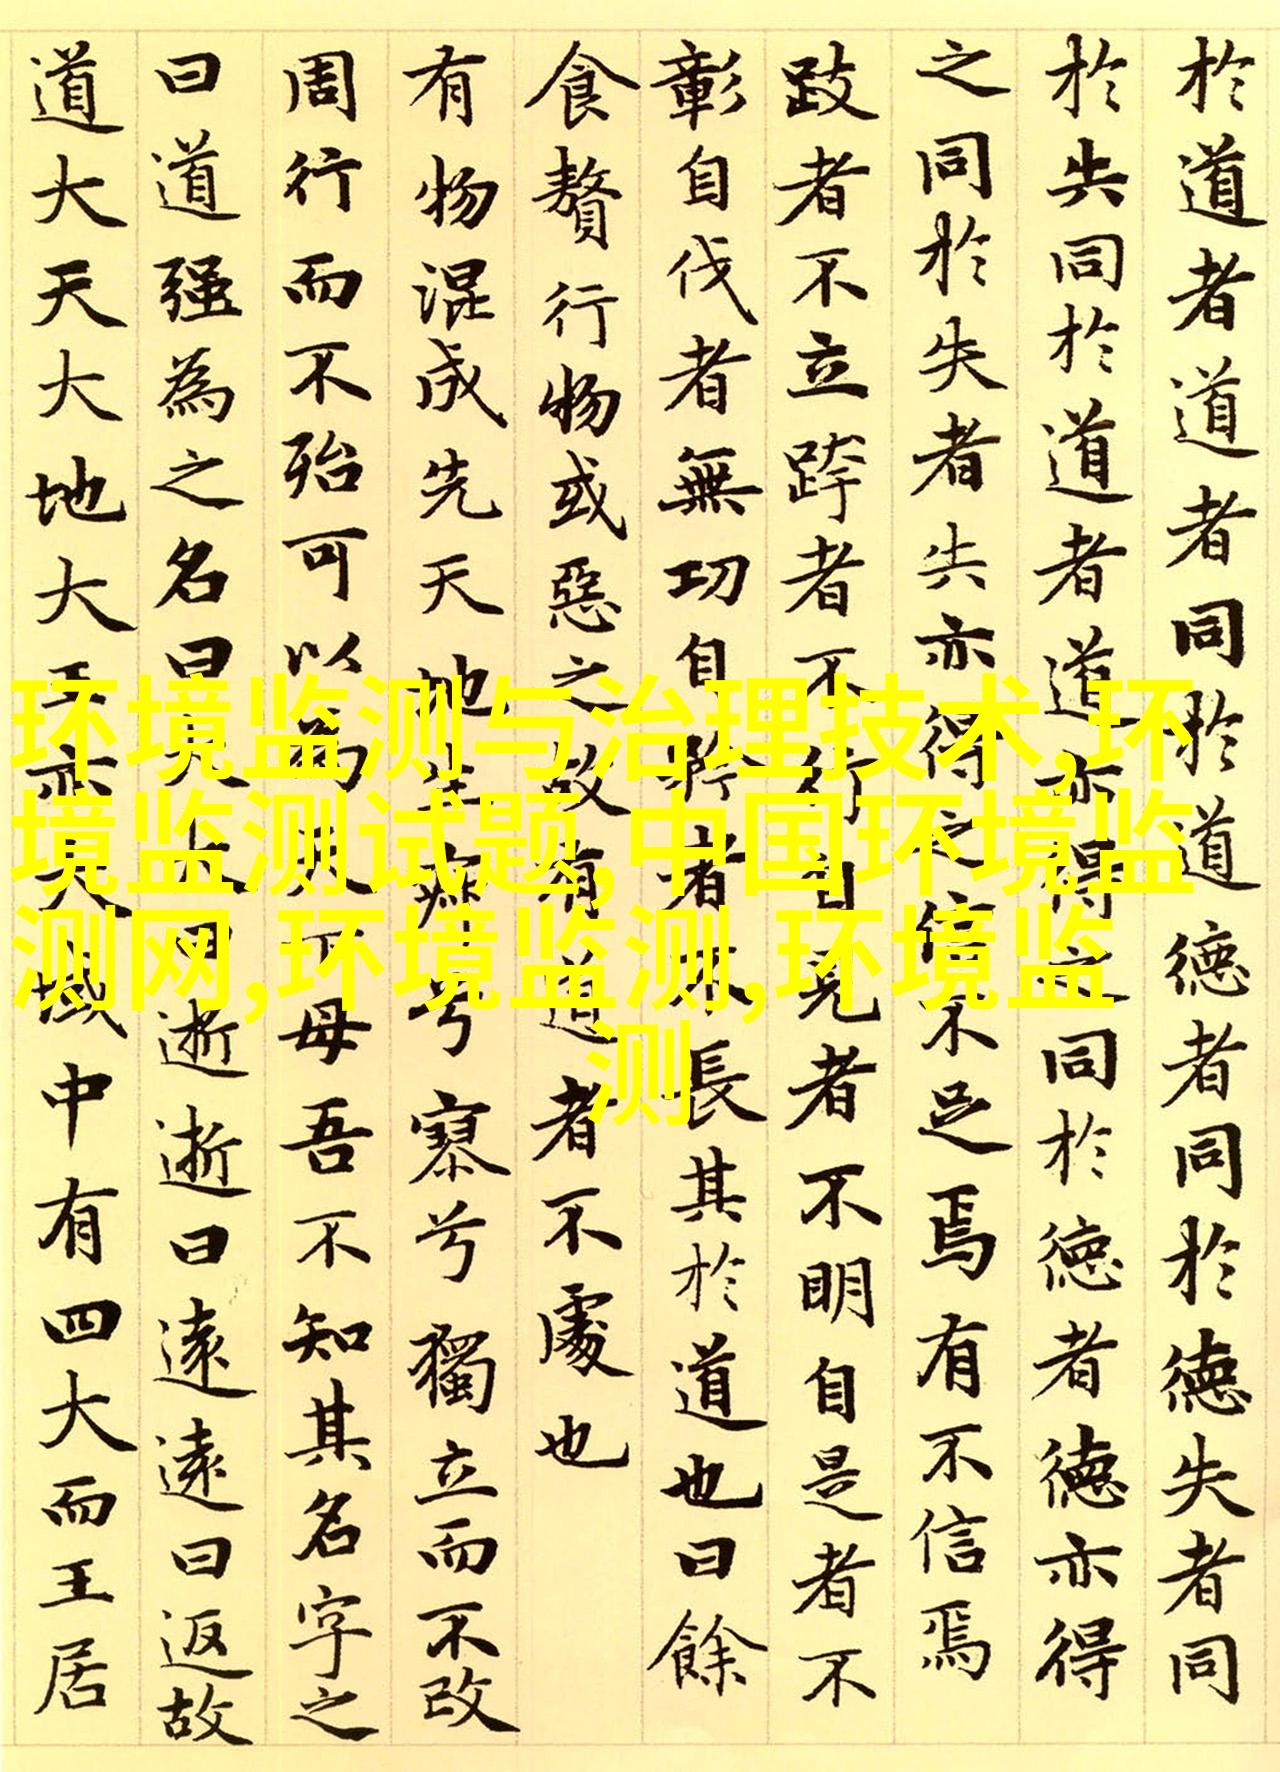 於道者道者同於道德者同於德失者同
於失同於道者道亦得之同於德者德亦得
之同於失者失亦得之信不足焉有不信焉
跂者不立跨者不行自見者不明自是者不
彰自伐者無功自矜者不長其於道也曰餘
食贅行物或惡之故有道者不處也
有物混成先天地生寂兮寥兮獨立而不改
周行而不殆可以為天下母吾不知其名字之
曰道强為之名曰大大曰逝逝曰遠遠曰返故
道大天大地大王亦大域中有四大而王居
环境监测与治理技术,环
境监测试题,中国环境监
测网,环境监测,环境监
测